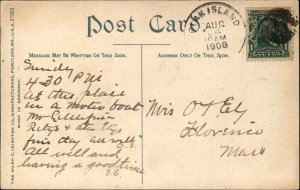 Post Card
PEAK ISLAND
AUG
AM
1908
MESSAGE MAY BE WRITTEN ON THIS SIDE.
ADDRESS ONLY ON THIS SIDE.
THE HUGH C. LEIGHTON CO., MANUFACTURERS, PORTLAND, ME., U.S.A.
MADE IN GERMANY.
Sunday
4-30 PM
At this place
in a motor boat
Mr
fine day all well
All well and
having a good time
E.E.
Mrs O T Ely
Florence
Mass